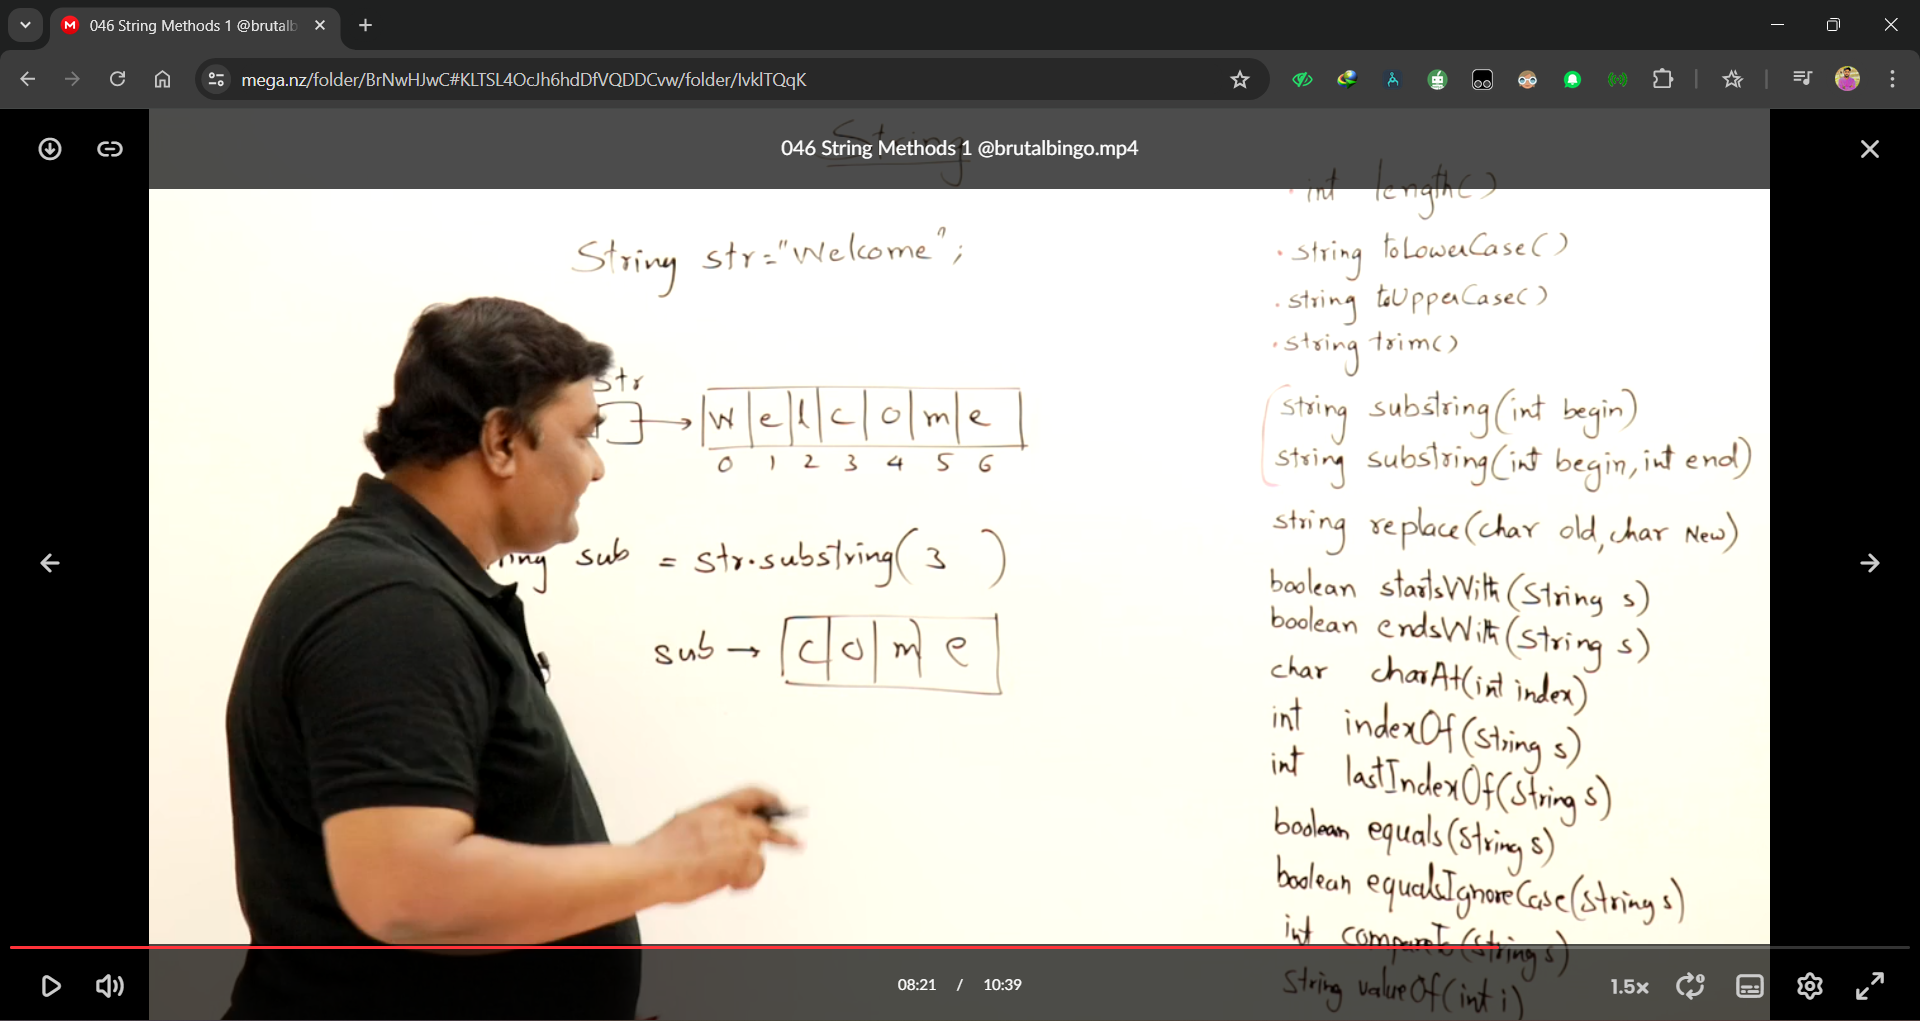 046 String Methods 1 @brutalb
mega.nz/folder/BrNwHJwC#KLTSL4OcJh6hdDfVQDDCvw/folder/IvklTQqK
String
046 String Methods 1 @brutalbingo.mp4
String str="Welcome";
str
W e l c o m e
0 1 2 3 4 5 6
ring sub = str.substring( 3 )
sub → c o m e
· int length()
· string toLowerCase()
· string toUpperCase()
· string trim()
string substring(int begin)
string substring(int begin, int end)
string replace(char old, char New)
boolean startsWith(String s)
boolean endsWith(String s)
char charAt(int index)
int indexOf(String s)
int lastIndexOf(String s)
boolean equals(String s)
boolean equalsIgnoreCase(String s)
int compareTo(String s)
String valueOf(int i)
08:21 / 10:39
1.5x